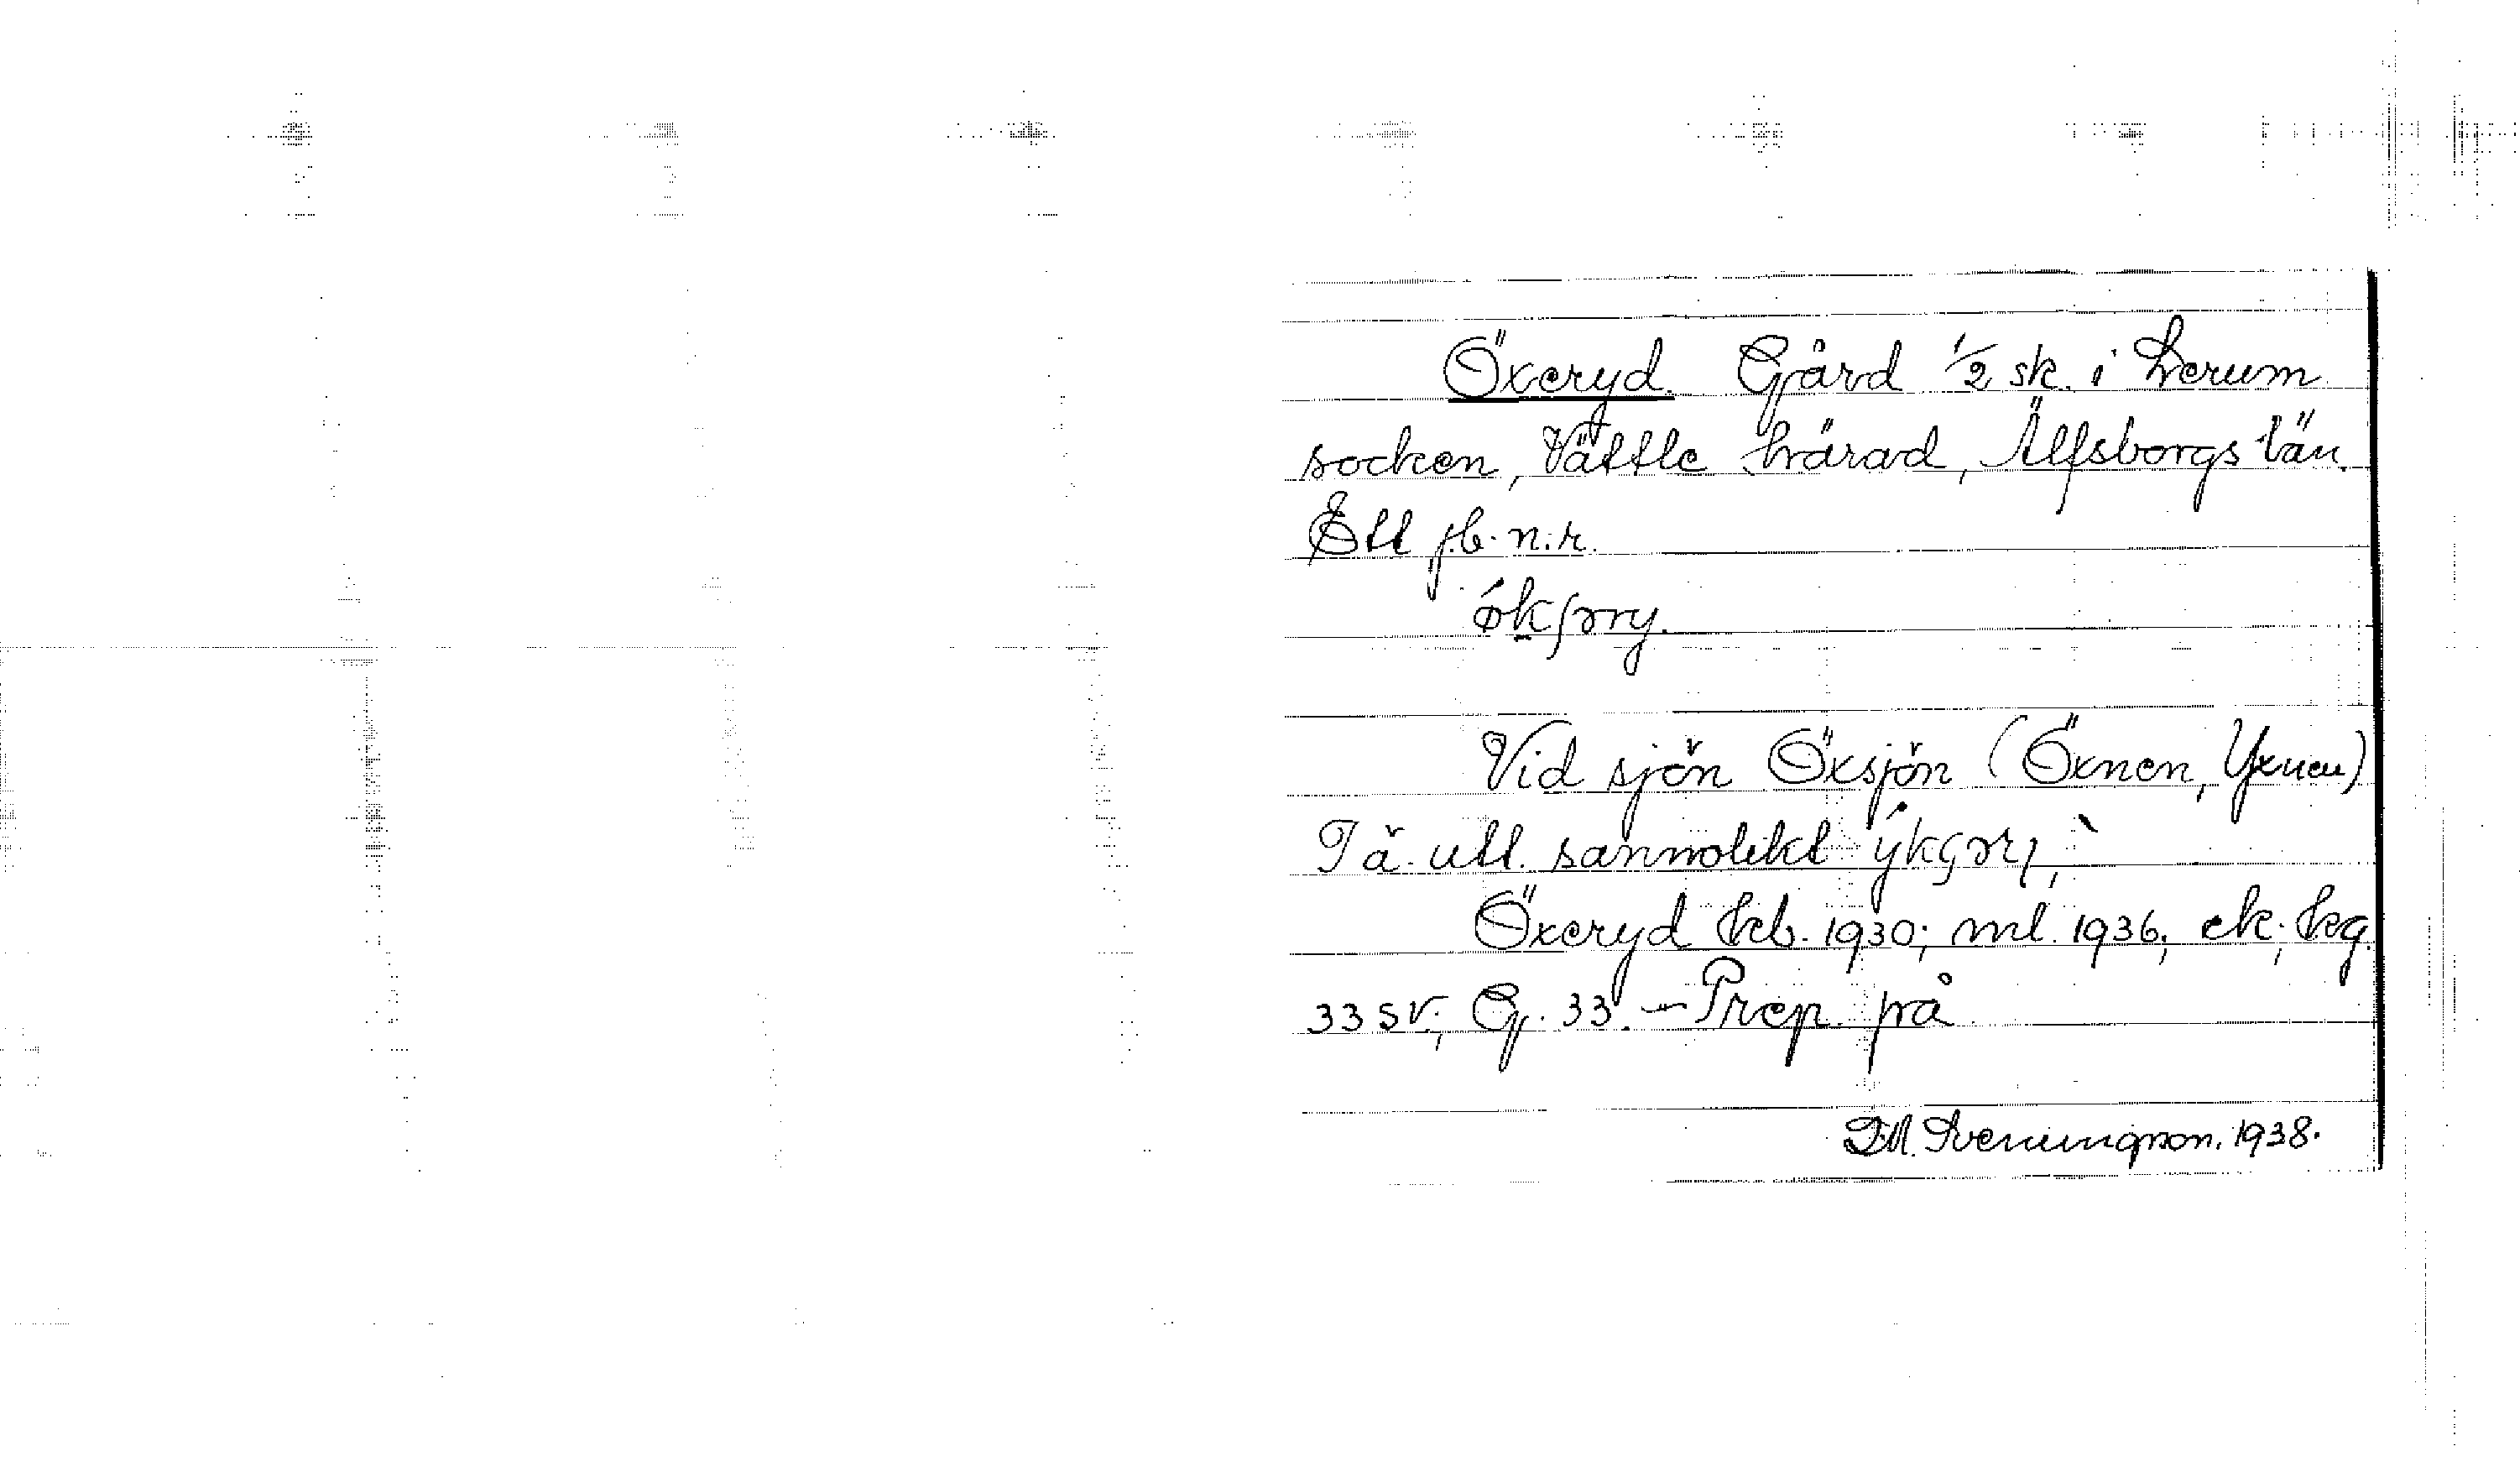 Öxeryd. Gård 1/2 sk. i Lerum
socken, Vättle härad, Älfsborgs län.
Ett jb. n:r.
Vid sjön Öxsjön (Öxnen, Yxnen)
Fä. utt. sannolikt
Öxeryd kb. 1930; ml. 1936; ek. kg.
33 SV; G. 33. – Prep. på
D.M. Sveningson. 1938.